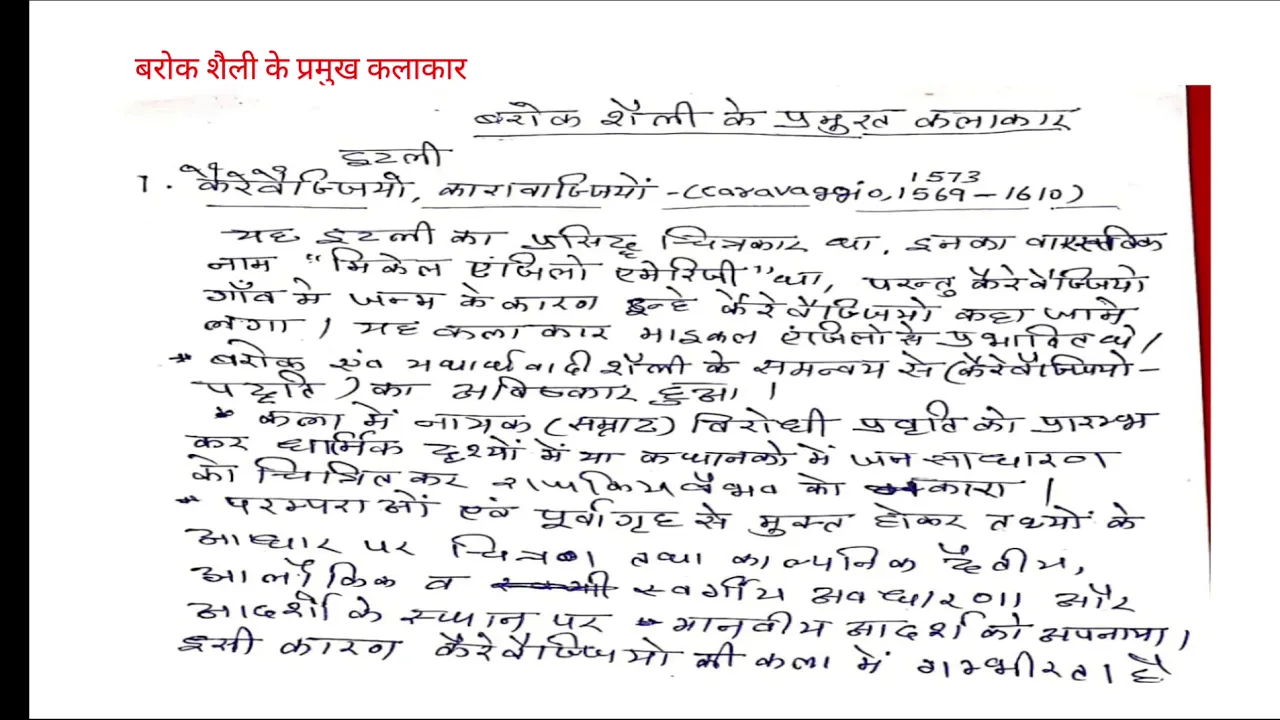 बरोक शैली के प्रमुख कलाकार
बरोक शैली के प्रमुख कलाकार
इटली
1. कैरेवैज्जियो, कारावाज्जियों - (Caravaggio, 1573 1569 - 1610)
यह इटली का प्रसिद्ध चित्रकार था, इनका वास्तविक
नाम "मिकेल एंजिलो एमेरिजी" था, परन्तु कैरेवैज्जियो
गाँव मे जन्म के कारण इन्हे कैरेवैज्जियो कहा जाने
लगा । यह कलाकार माइकल एंजिलो से प्रभावित थे ।
* बरोक एंव यथार्थवादी शैली के समन्वय से (कैरेवैज्जियो-
पद्धति) का अविष्कार हुआ ।
* कला में नायक (सम्राट) विरोधी प्रवृति को प्रारम्भ
कर धार्मिक दृश्यों में या कथानको में जन साधारण
को चित्रित कर राजकिय वैभव को नकारा ।
* परम्पराओं एवं पूर्वाग्रह से मुक्त होकर तथ्यों के
आधार पर चित्रण तथा काल्पनिक दैवीय,
आलौकिक व स्वर्गीय अवधारणा और
आदर्शो के स्थान पर मानवीय आदर्श को अपनाया ।
इसी कारण कैरेवैज्जियो की कला में गम्भीरता है